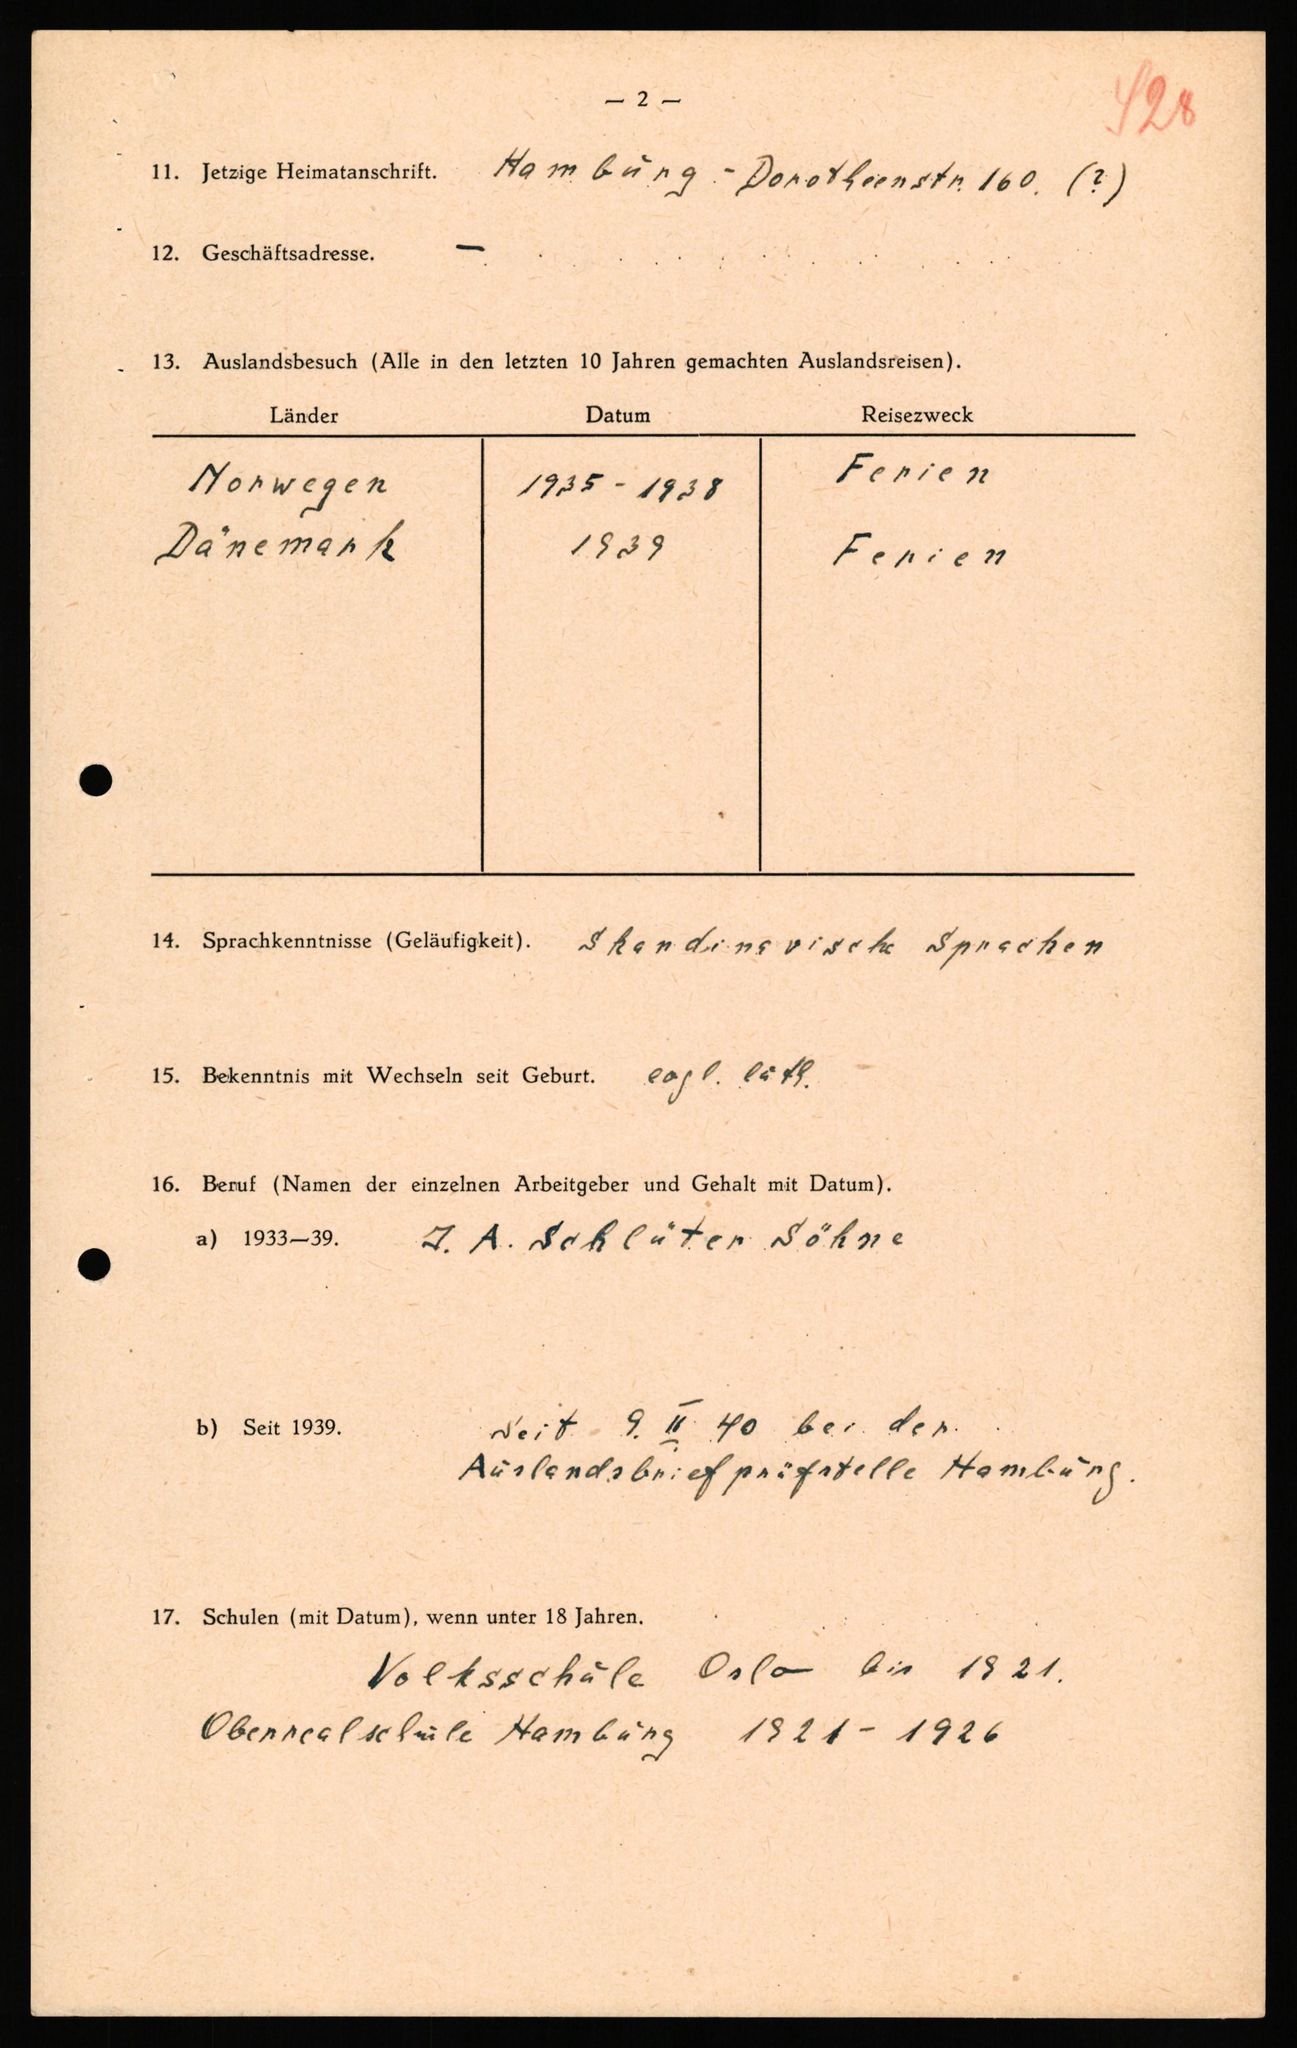 — 2 —
428
11. Jetzige Heimatanschrift. Hamburg - Dorotheenstr. 160. (?)
12. Geschäftsadresse. —
13. Auslandsbesuch (Alle in den letzten 10 Jahren gemachten Auslandsreisen).
Länder Datum Reisezweck
Norwegen 1935 - 1938 Ferien
Dänemark 1939 Ferien
14. Sprachkenntnisse (Geläufigkeit). Skandinavische Sprachen
15. Bekenntnis mit Wechseln seit Geburt. evgl. luth.
16. Beruf (Namen der einzelnen Arbeitgeber und Gehalt mit Datum).
a) 1933—39. J. A. Schlüter Söhne
b) Seit 1939. Seit 9. II 40 bei der
Auslandsbriefprüfstelle Hamburg.
17. Schulen (mit Datum), wenn unter 18 Jahren.
Volksschule Oslo bis 1921.
Oberrealschule Hamburg 1921 - 1926